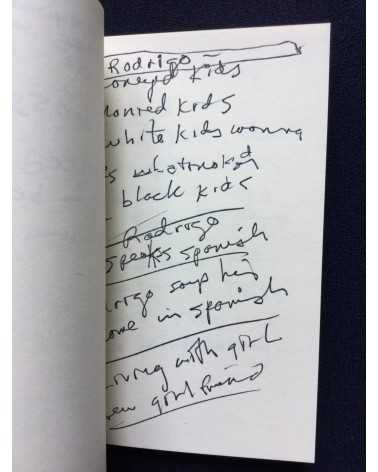 Rodrigo
oneyed kids
monied kids
white kids wonna
black kids
Rodrigo
speaks spanish
rigo says his
ome in spanish
iving with girl
ew girl friend